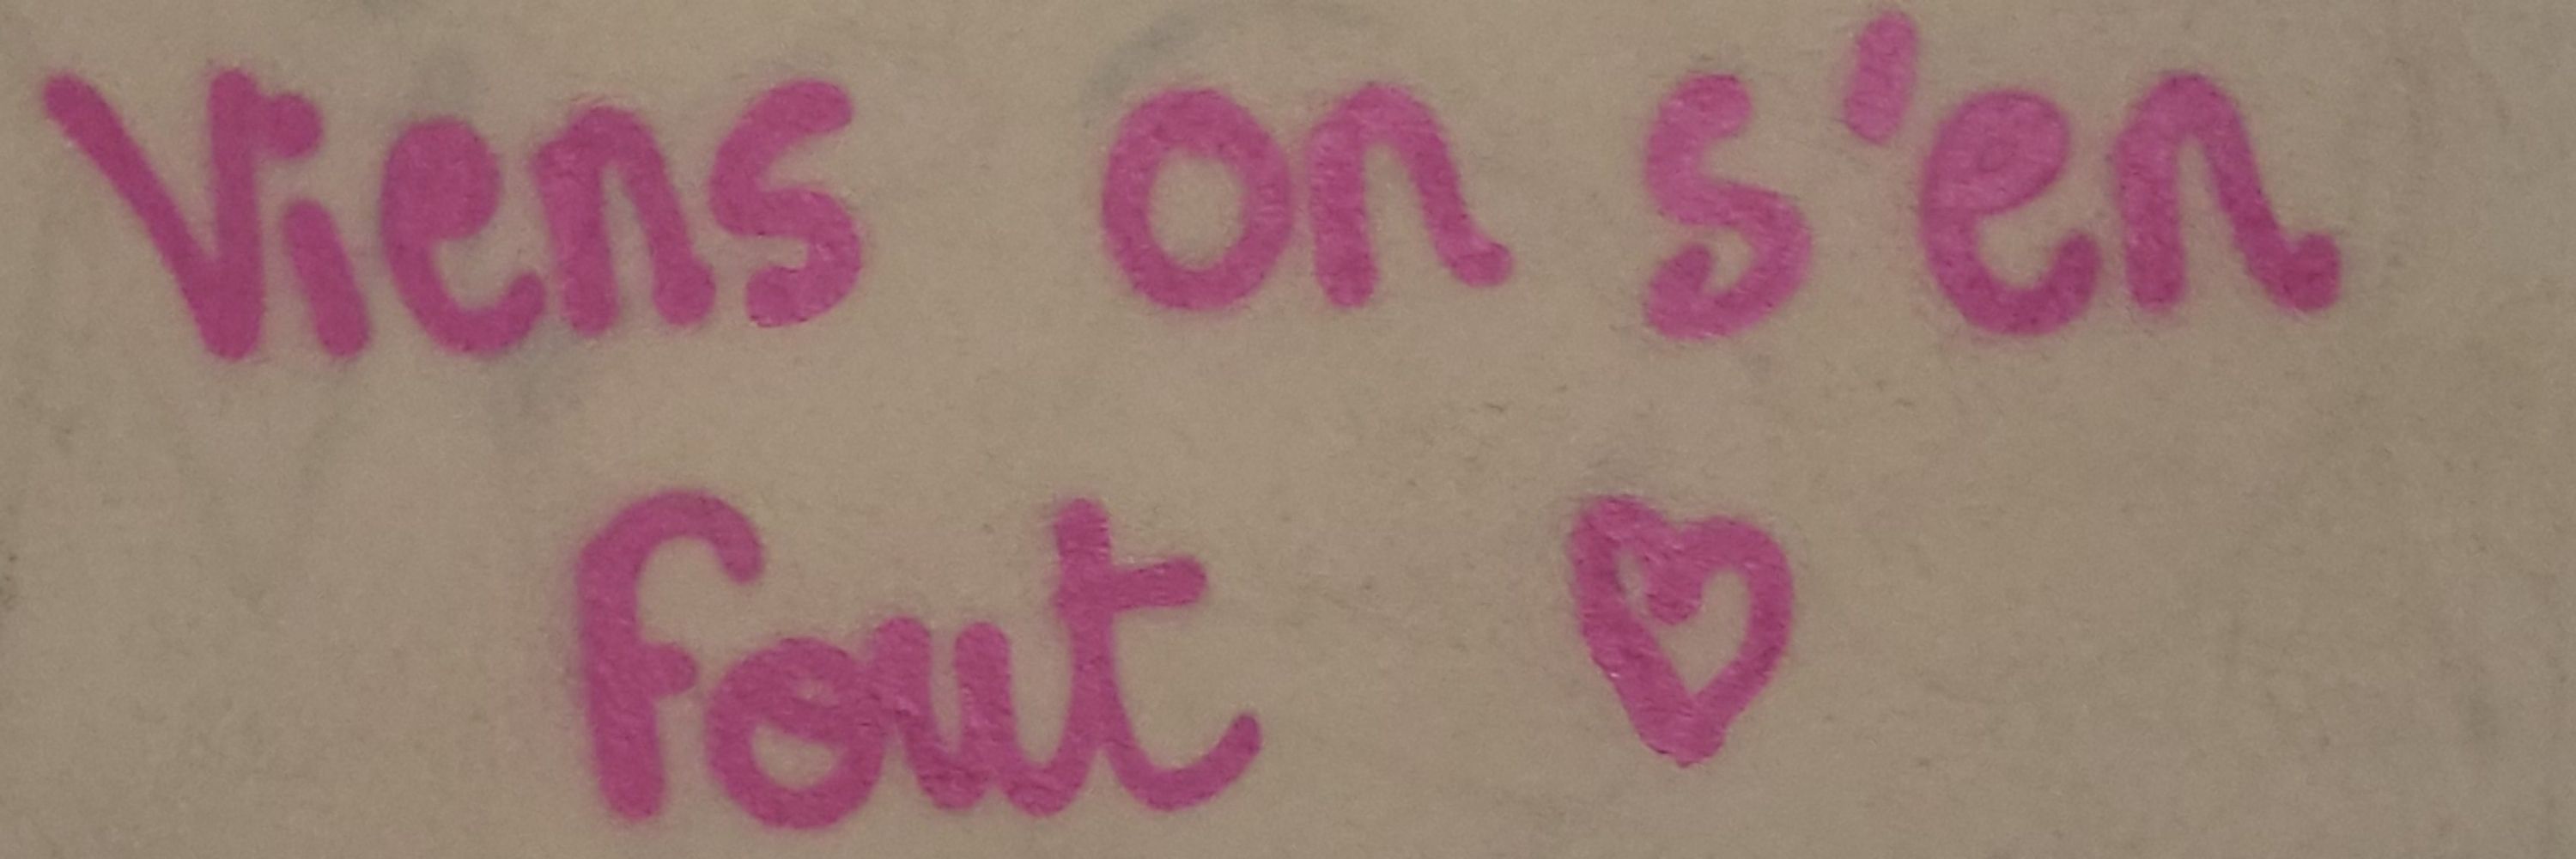 Viens on s'en
fout ♡